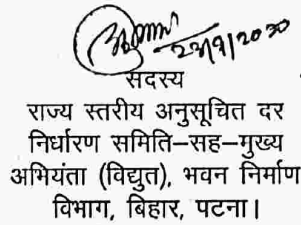 23/9/2020
सदस्य
राज्य स्तरीय अनुसूचित दर
निर्धारण समिति–सह–मुख्य
अभियंता (विद्युत), भवन निर्माण
विभाग, बिहार, पटना।